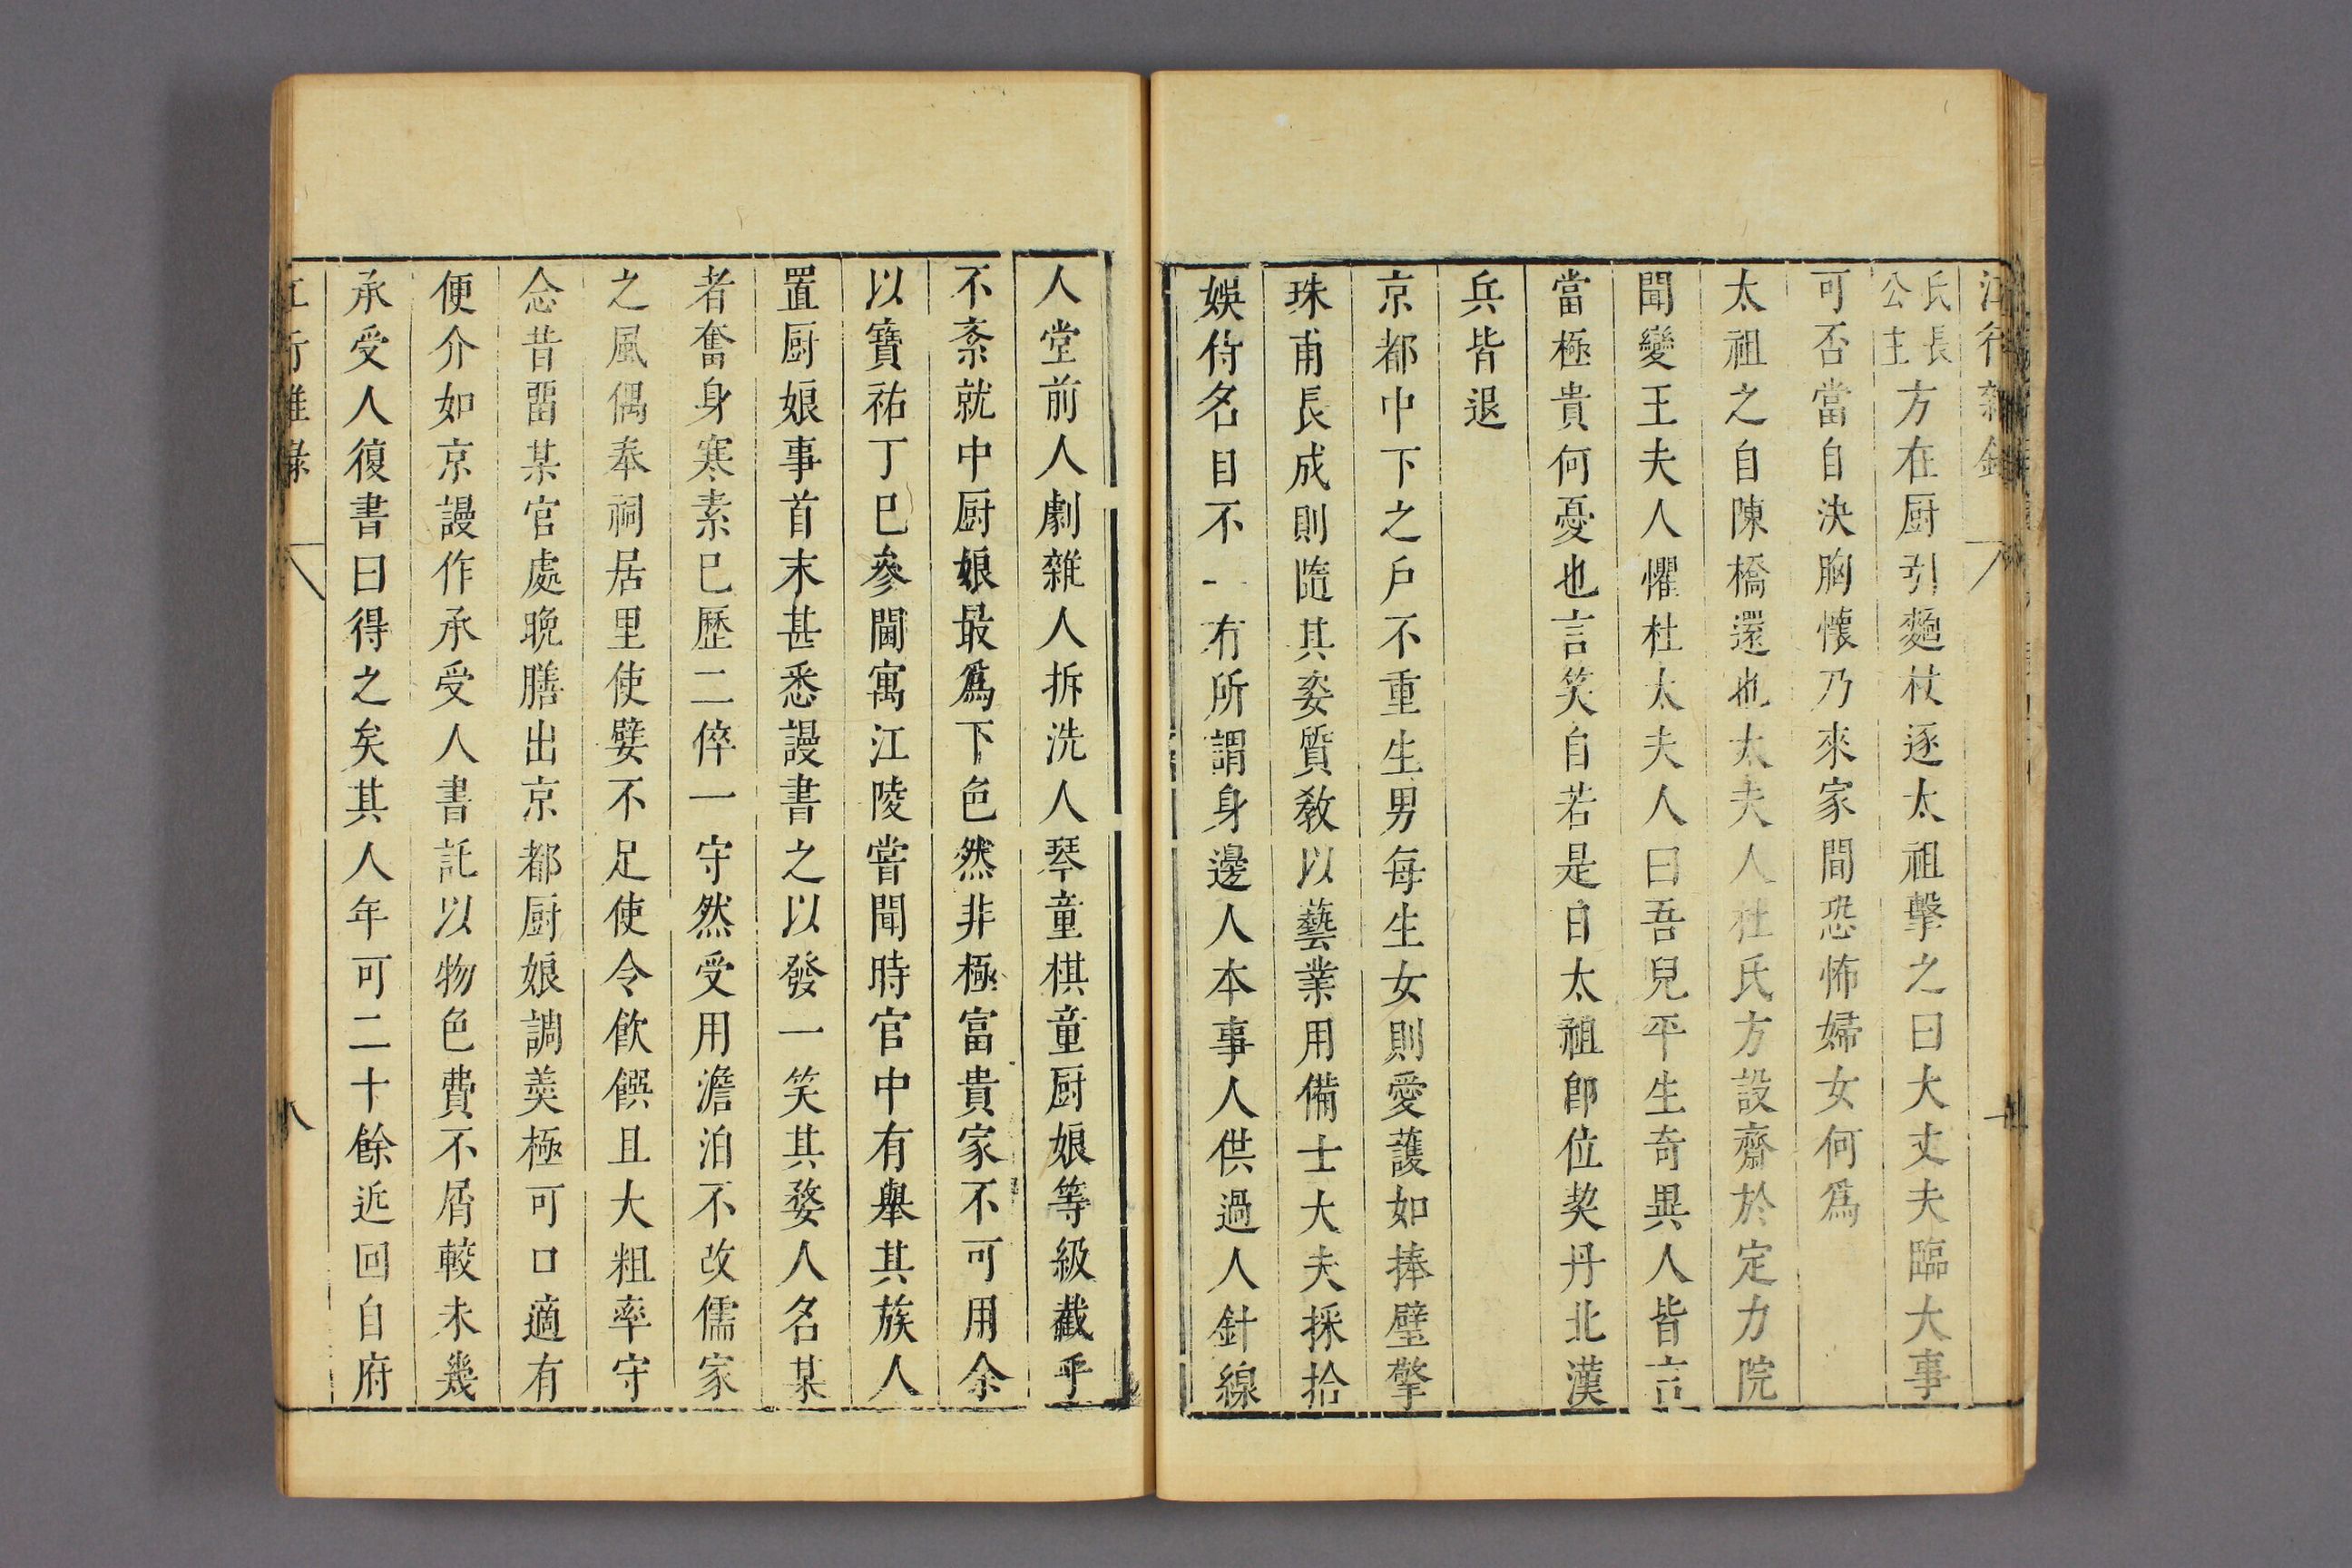 江行雜錄
氏長公主方在厨引麵杖逐太祖擊之曰大丈夫臨大事
可否當自決胸懷乃來家間恐怖婦女何爲
太祖之自陳橋還也太夫人杜氏方設齋於定力院
聞變王夫人懼杜太夫人曰吾兒平生奇異人皆言
當極貴何憂也言笑自若是日太祖卽位契丹北漢
兵皆退
京都中下之戶不重生男每生女則愛護如捧璧擎
珠甫長成則隨其姿質教以藝業用備士大夫採拾
娛侍名目不一有所謂身邊人本事人供過人針線
人堂前人劇雜人拆洗人琴童棋童厨娘等級截乎
不紊就中厨娘最爲下色然非極富貴家不可用余
以寶祐丁巳參閫寓江陵嘗聞時官中有舉其族人
置厨娘事首末甚悉謾書之以發一笑其婺人名某
者奮身寒素已歷二倅一守然受用澹泊不改儒家
之風偶奉祠居里使嬖不足使令飮饌且大粗率守
念昔畱某官處晚膳出京都厨娘調羹極可口適有
便介如京謾作承受人書託以物色費不屑較未幾
承受人復書曰得之矣其人年可二十餘近回自府
江行雜錄
八